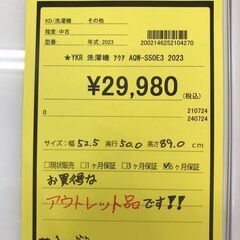 KD/洗濯機 その他
程度:中古
型番: 年式:2023 2002146252104270
★YKR 洗濯機 ｱｸｱ AQW-S50E3 2023
¥29,980
(税込)
210724
240724
サイズ:幅 52.5 奥行 50.0 高さ 89.0 cm
□現状販売 □1ヶ月保証 □3ヶ月保証 ☑6ヶ月保証
お買得な
アウトレット品です!!